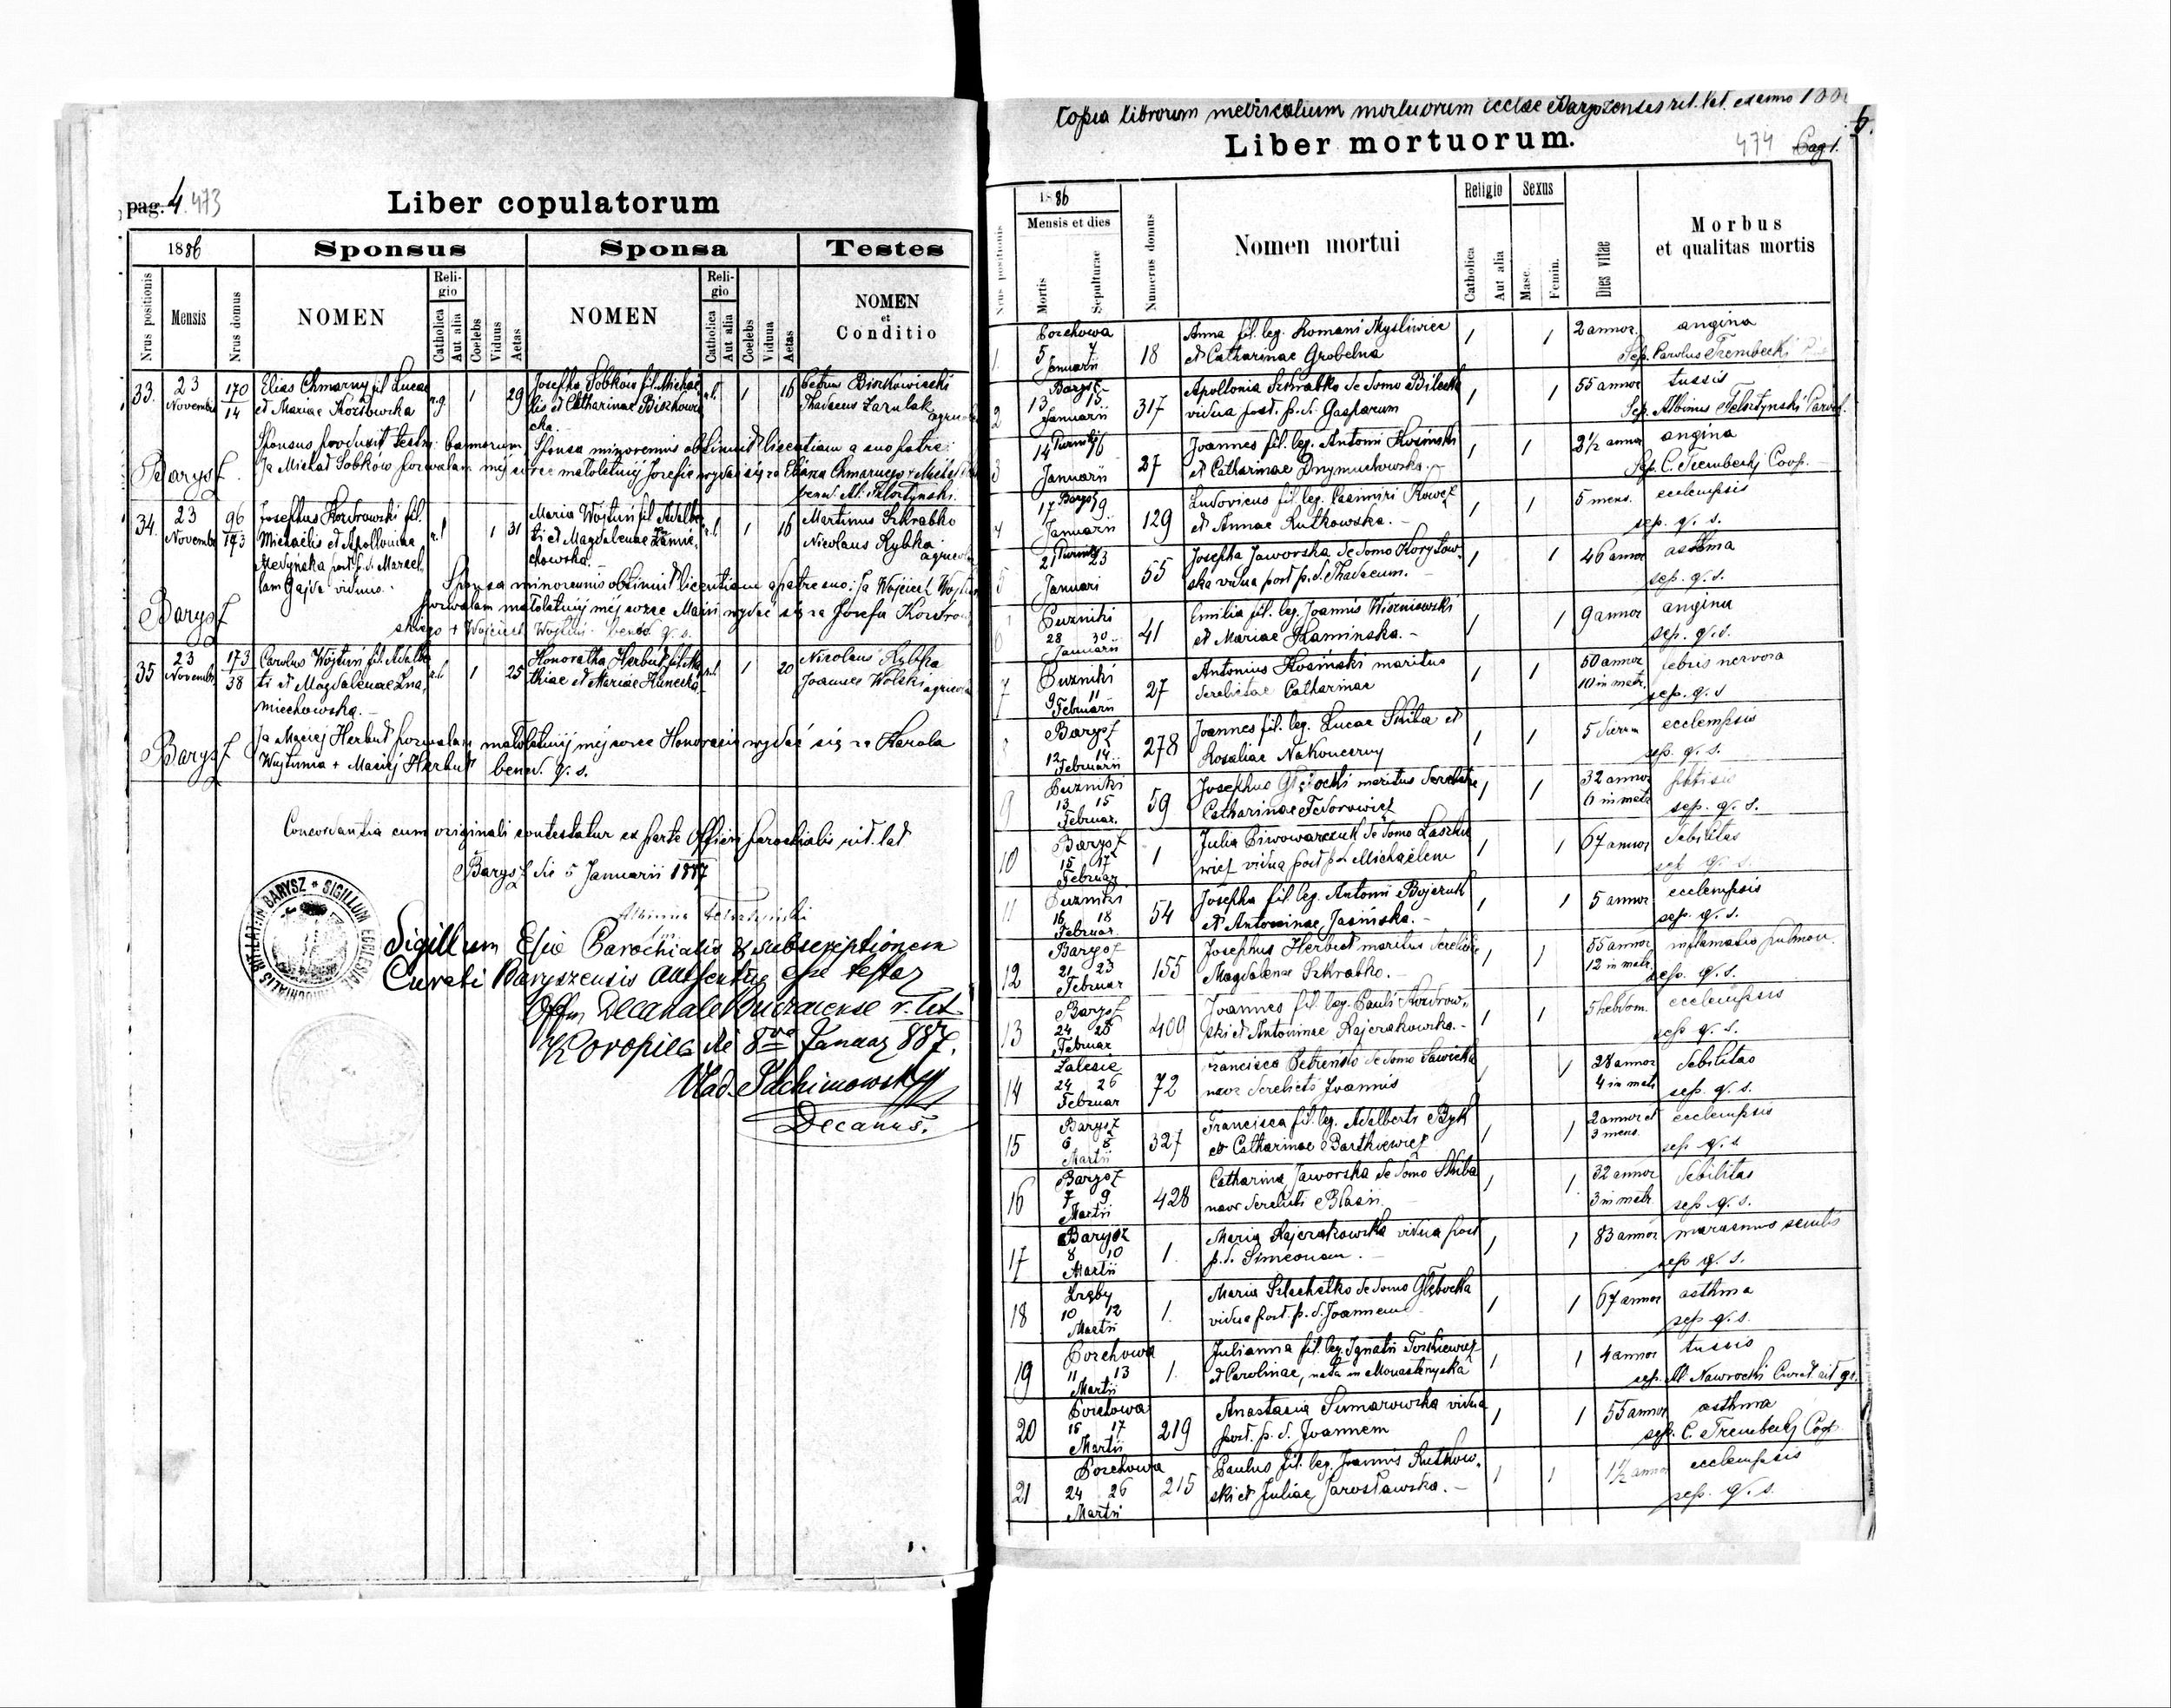 pag. 4. 473
Liber copulatorum
1886
Sponsus
Sponsa
Testes
Nrus positionis
Mensis
Nrus domus
NOMEN
Religio
Catholica
Aut alia
Coelebs
Viduus
Aetas
NOMEN
Religio
Catholica
Aut alia
Coelebs
Vidua
Aetas
NOMEN
et
Conditio
33. 23 Novembr 170 14
Elias Chmarny fil. Lucae
et Mariae Kozłowska
r.g. 1 29
Josepha Sobków fil. Michae
lis et Catharinae Biskowie
cka.
r.l. 1 16
Petrus Biskowiecki
Thadaeus Zarulak
Sponsus produxit testm. bannorum Sponsa minorennis obtinuit licentiam a suo patre:
Barysz. Ja Michał Sobków pozwalam mej córce małoletniej Józefie wydać się za Eliasza Chmarnego + Michał
bened. Al. Telsztynski.
34. 23 Novembr 96 173
Josephus Kozdrowski fil.
Michaelis et Apolloniae
post p.d. Marcel
lam Gajda viduus.
r.l. 1 31
Maria Wojtuń fil. Adalber
ti et Magdalenae
chowska.
r.l. 1 16
Martinus Szkrabko
Nicolaus Rybka
agricolae
Sponsa minorennis obtinuit licentiam a patre suo: Ja Wojciech Wojtuń
Barysz pozwalam małoletniej mej córce Marii wydać się za Józefa Kozdrow
skiego + Wojciech Wojtuń. bened. q. s.
35 23 Novembr 173 38
Carolus Wojtuń fil. Adalber
ti et Magdalenae Zna
miechowska.
r.l. 1 25
Honoratha Herbut fil. Mat
thiae et Mariae Kunecka
r.l. 1 20
Nicolaus Rybka
Joannes Wolski agricolae
Barysz Ja Maciej Herbut pozwalam małoletniej mej córce Honoracie wydać się za Karola
Wojtunia + Maciej Herbut bened. q. s.
Concordantia cum originali contestatur ex parte Officii parochialis rit. lat
Barysz die 5 Januarii 1887
Albinus Telsztynski
SIGILLUM ECCLESIAE PAROCHIALIS RIT. LAT. IN BARYSZ
Sigillum Eccl. Parochialis & subscriptionem
Curati Baryszensis authentice esse testor
Offm Decanale Buczacense r. lat.
Koropiec die 8va Januar 887.
Vlad. Pachimowski
Decanus.
Copia librorum metricalium mortuorum ecclae Baryszensis rit. lat. ex anno 188
Liber mortuorum.
474 Pag 1.
6.
Nrus positionis
1886
Mensis et dies
Mortis
Sepulturae
Numerus domus
Nomen mortui
Religio
Catholica
Aut alia
Sexus
Masc.
Femin.
Dies vitae
Morbus
et qualitas mortis
1 Porchowa 5 7 Januarii 18
Anna fil. leg. Romani Mysliwiec
et Catharinae Grobelna
1 1 2 annor. angina
Sep. Carolus Trembecki
2 Barysz 13 15 Januarii 317
Apollonia Szkrabko de domo Bilecka
vidua post. p. d. Gasparum
1 1 55 annor tussis
Sep. Albinus Telsztynski Paroch.
3 Puzniki 14 16 Januarii 27
Joannes fil. leg. Antonii Kosinski
et Catharinae Drymuchowska.
1 1 2½ annor angina
Sep. C. Trembecki Coop.
4 Barysz 17 19 Januarii 129
Ludovicus fil. leg. Casimiri Kowcz
et Annae Rutkowska.
1 1 5 mens. ecclempsis
sep. q. s.
5 Puzniki 21 23 Januari 55
Josepha Jaworska de domo Korytow
ska vidua post p. d. Thadaeum.
1 1 46 annor asthma
sep. q. s.
6 Puzniki 28 30 Januarii 41
Emilia fil. leg. Joannis Wiszniowski
et Mariae Kaminska.
1 1 9 annor angina
sep. q. s.
7 Puzniki 9 11 Februarii 27
Antonius Kosinski maritus
derelictae Catharinae
1 1 50 annor 10 in matr. febris nervosa
sep. q. s
8 Barysz 12 14 Februarii 278
Joannes fil. leg. Lucae Skiba et
Rosaliae Nakoneczny
1 1 5 dierum ecclempsis
sep. q. s.
9 Puzniki 13 15 Februar. 59
Josephus Głębocki maritus derelictae
Catharinae Fedorowicz
1 1 32 annor 6 in matr phtisis
sep. q. s.
10 Barysz 15 17 Februar 1
Julia Piwowarczuk de domo Laszkie
wicz vidua post p.d. Michaelem
1 1 67 annor debilitas
sep. q. s.
11 Puzniki 16 18 Februar. 54
Josepha fil. leg. Antonii Bojczuk
et Antoninae Jasinska.
1 1 5 annor ecclempsis
sep. q. s.
12 Barysz 21 23 Februar 155
Josephus Herbut maritus derelictae
Magdalenae Szkrabko.
1 1 55 annor 12 in matr. inflamatio pulmon.
sep. q. s.
13 Barysz 24 26 Februar 409
Joannes fil. leg. Pauli Kozdrow
ski et Antoninae Rajczakowska.
1 1 5 hebdom. ecclempsis
sep. q. s.
14 Zalesie 24 26 Februar 72
Francisca Petrenko de domo Sawicka
uxor derelicti Joannis
1 1 28 annor 4 in matr debilitas
sep. q. s.
15 Barysz 6 8 Martii 327
Francisca fil. leg. Adalberti Byk
et Catharinae Bartkiewicz
1 1 2 annor et 3 mens. ecclempsis
sep. q. s
16 Barysz 7 9 Martii 428
Catharina Jaworska de domo Skiba
uxor derelicti Blasii.
1 1 32 annor 3 in matr. debilitas
sep. q. s.
17 Barysz 8 10 Martii 1.
Maria Rajczakowska vidua post
p. d. Simeonem.
1 1 83 annor marasmus senilis
sep q. s.
18 Zręby 10 12 Martii 1.
Maria Szlachetko de domo Głębocka
vidua post. p. d. Joannem
1 1 67 annor asthma
sep q. s.
19 Porchowa 11 13 Martii 1.
Julianna fil. leg. Ignatii Toszkiewicz
et Carolinae, nata in Monasterzyska
1 1 4 annor tussis
sep. M. Nawrocki Curat rit gr.
20 Porchowa 15 17 Martii 219
Anastasia Sumarowska vidua
post. p. d. Joannem
1 1 55 annor asthma
sep. C. Trembecki Coop
21 Porchowa 24 26 Martii 215
Paulus fil. leg. Joannis Rutkow
ski et Juliae Jarosławska.
1 1 1½ annor ecclempsis
sep. q. s.